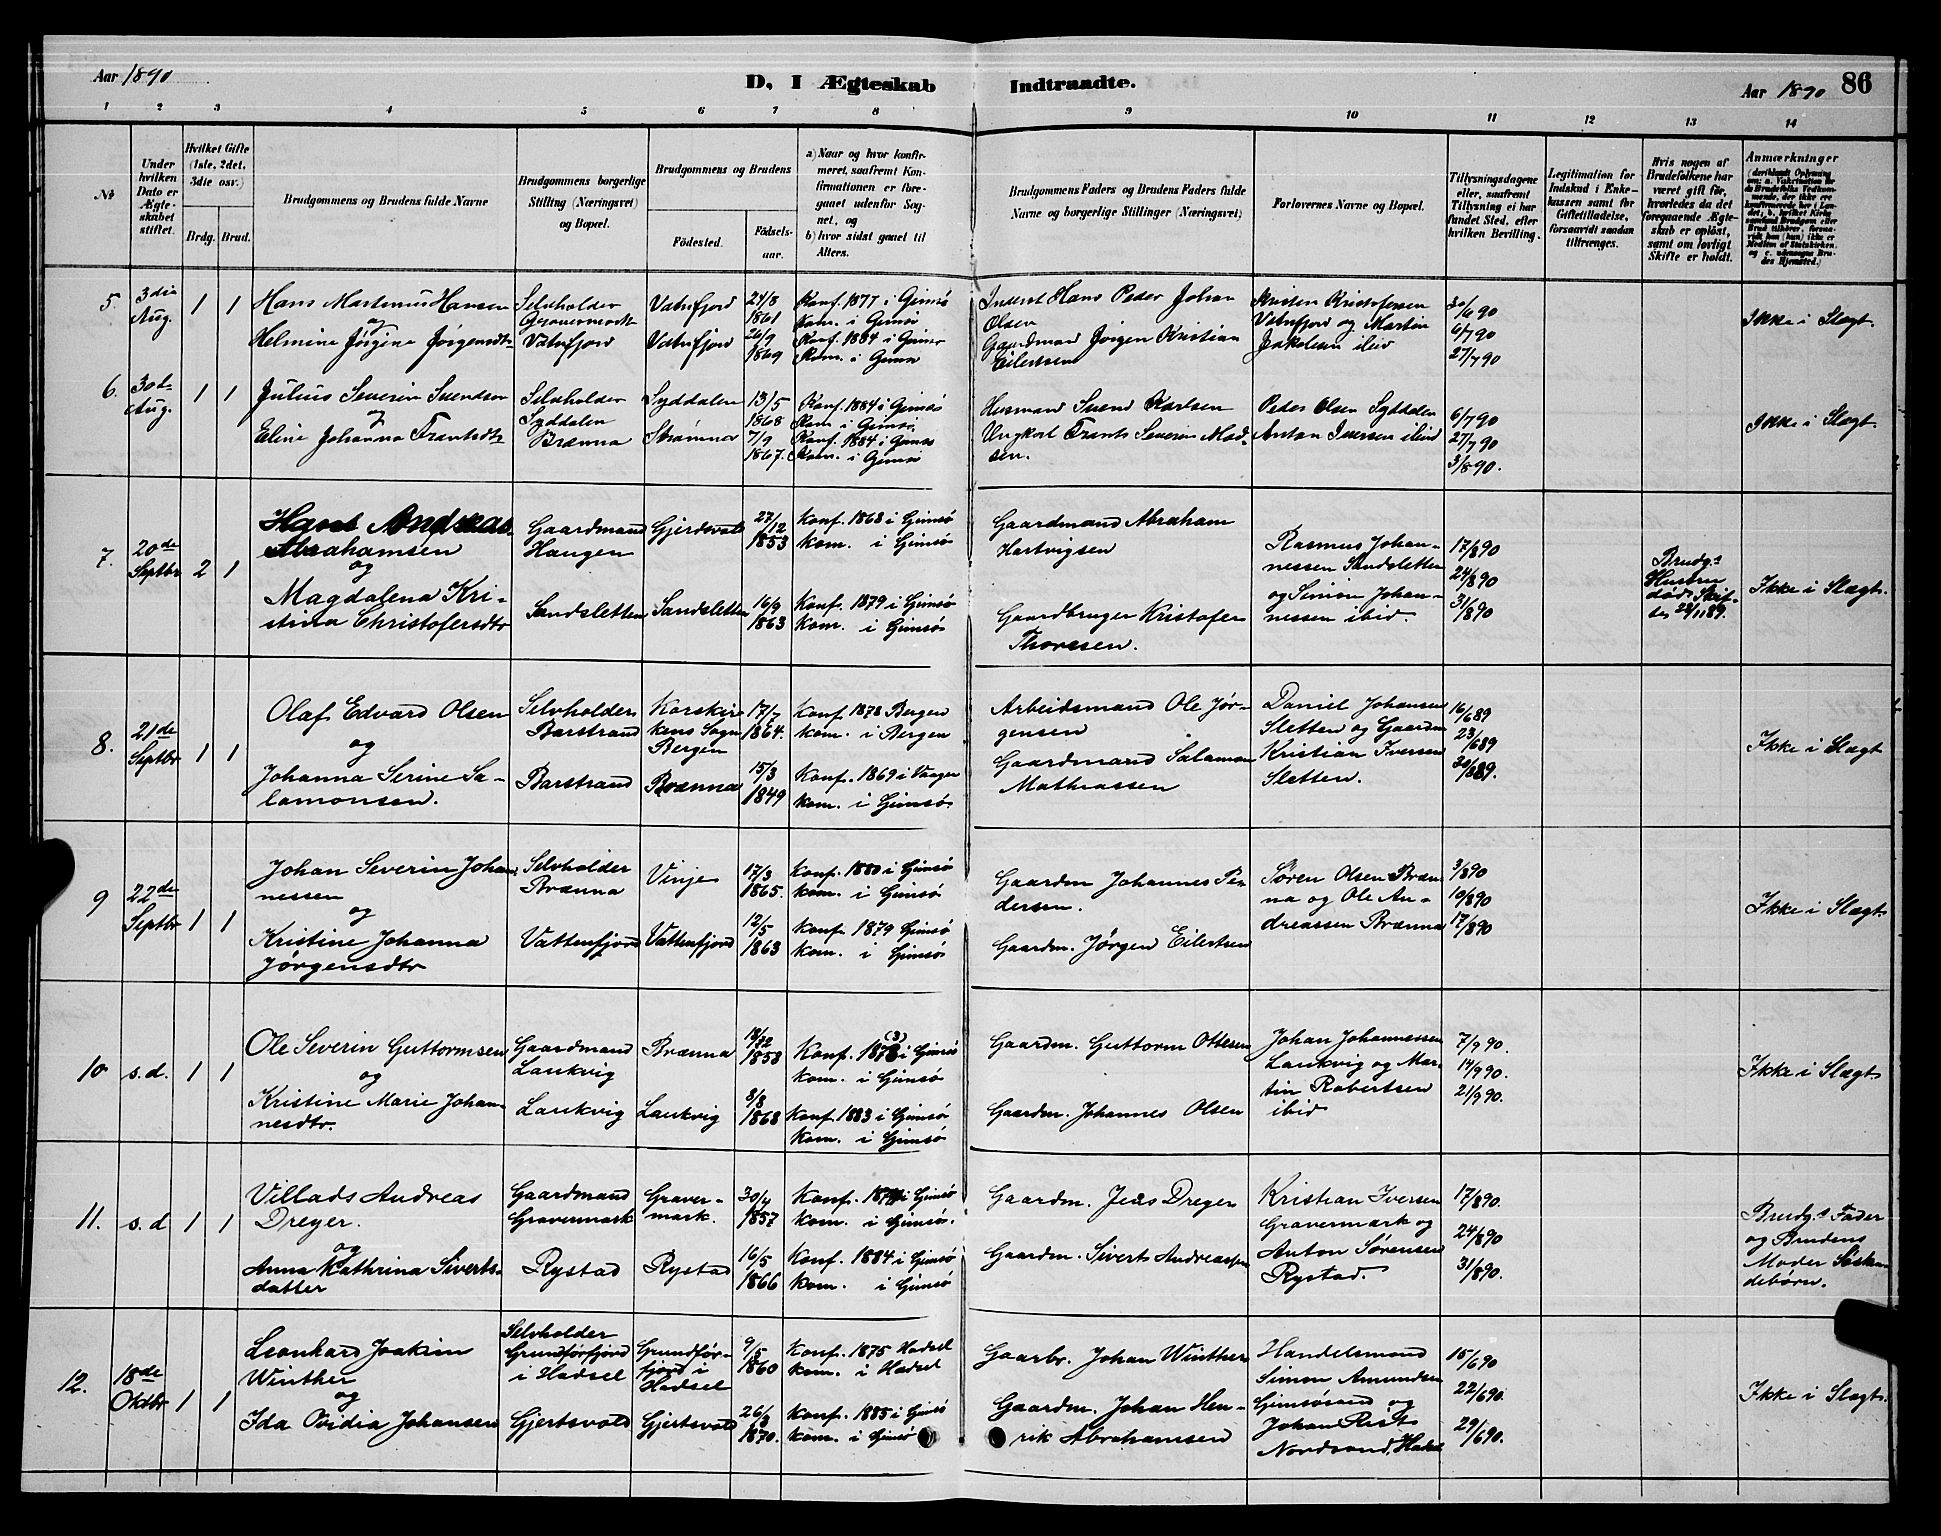 Aar 1890
D, I Ægteskab Indtraadte.
Aar 1890 86
1 2 3 4 5 6 7 8 9 10 11 12 13 14
No
Under hvilken Dato er Ægteskabet stiftet.
Hvilket Gifte (1ste, 2det, 3die osv.)
Brdg. Brud.
Brudgommens og Brudens fulde Navne
Brudgommens borgerlige Stilling (Næringsvei) og Bopæl.
Brudgommens og Brudens
Fødested.
Fødselsaar.
a) Naar og hvor konfirmeret, saafremt Konfirmationen er foregaaet udenfor Sognet, og
b) hvor sidst gaaet til Alters.
Brudgommens Faders og Brudens Faders fulde Navne og borgerlige Stillinger (Næringsvei)
Forlovernes Navne og Bopæl.
Tillysningsdagene eller, saafremt Tillysning ei har fundet Sted, efter hvilken Bevilling.
Legitimation for Indskud i Enkekassen samt for Giftetilladelse, forsaavidt saadan tiltrænges.
Hvis nogen af Brudefolkene har været gift før, hvorledes da det foregaaende Ægteskab er opløst, samt om lovligt Skifte er holdt.
Anmærkninger
5. 3die Aug. 1 1
Hans Martinus Hansen
og
Helmine Jørgine Jørgensdtr
Selvholder
Vatnfjord
Vatnfjord
Vatnfjord
24/8 1861
26/9 1869
Konf. 1877 i Gimsø
Kom. i Gimsø
Konf. 1884 i Gimsø
Kom. i Gimsø
Inderst Hans Peder Johan
Olsen
Gaardmand Jørgen Kristian
Eilertsen
Kristen Kristofersen
Vatnfjord og Martin
Jakobsen ibid
6/7 90
27/7 90
Ikke i Slægt.
6. 30te Aug. 1 1
Julius Severin Svendsen
og
Eline Johanna Frantsdtr
Selvholder
Syddalen
Brænna
Syddalen
Strømnes
13/5 1868
7/9 1867.
Konf. 1884 i Gimsø
Kom. i Gimsø.
Konf. 1884 i Gimsø
Kom. i Gimsø
Husmand Svend Karlsen
Ungkarl Frants Severin Madsen.
Peder Olsen Syddalen
Anton Iversen ibid
6/7 90
27/7 90
3/8 90.
Ikke i Slægt.
7. 20de Septbr 2 1
Hans Andreas
Abrahamsen
og
Magdalena Kri-
stina Christofersdtr
Gaardmand
Haugen
Sandsletten
Gjerdsvold
Sandsletten
27/12 1853
16/9 1863
Konf. 1868 i Gimsø
Kom. i Gimsø
Konf. 1879 i Gimsø
Kom. i Gimsø
Gaardmand Abraham
Hartvigsen
Gaardbruger Kristofer
Thoresen.
Rasmus Johan-
nessen Sandsletten
og Simon Johan-
nessen ibid.
17/8 90
24/8 90
31/8 90
Brudg.s
Hustru
død. Skif-
tes 28/11 89.
Ikke i Slægt.
8. 21de Septbr 1 1
Olaf Edvard Olsen
og
Johanna Serine Sa-
lamonsen.
Selvholder
Barstrand
Barstrand
Korskir
kens Sogn
Bergen
Brænna
17/7 1864.
15/3 1849
Konf. 1878 Bergen
kom. i Bergen
Konf. 1869 i Vaagen
kom. i Gimsø
Arbeidsmand Ole Jør-
gensen
Gaardmand Salamon
Mathiassen
Daniel Johansen
Sletten og Gaardm
Kristian Iversen
Sletten.
16/6 89
23/6 89
Ikke i Slægt
9 22de Septbr 1 1
Johan Severin Johan-
nessen
og
Kristine Johanna
Jørgensdtr
Selvholder
Brænna
Vattenfjord
Vinje
Vattenfjord
17/3 1865.
12/5 1863
Konf. 1880 i Gimsø
kom. i Gimsø
Konf. 1879 Gimsø
kom. i Gimsø
Gaardm Johannes Pe-
dersen.
Gaardm. Jørgen Eilertsen
Søren Olsen Bræn-
na og Ole An-
dreassen Brænna
3/8 90
10/8 90
17/8 90
Ikke i Slægt
10 s.d. 1 1
Ole Severin Guttormsen
og
Kristine Marie Johan-
nesdtr.
Gaardmand
Laukvig
Laukvig
Brænna
Laukvig
1858
8/8 1868
Konf. 1873 (3) i Gimsø
kom. i Gimsø
Konf. 1883 i Gimsø
kom. i Gimsø
Gaardm. Guttorm Ottesen
Gaardm. Johannes Olsen
Johan Johannessen
Laukvig og Mar-
tin Robertsen
ibid
7/9 90.
14/9 90.
21/9 90.
Ikke i Slægt
11. s.d 1 1
Villads Andreas
Dreyer.
og
Anna Kathrina Siverts-
datter
Gaardmand
Gravermark
Rystad
Graver-
mark.
Rystad
30/4 1857
16/5 1866
Konf. i Gimsø
kom. i Gimsø.
Konf. 1884 i Gimsø
kom. i Gimsø
Gaardm. Jens Dreyer
Gaardm. Siverts Andreassen
Kristian Iversen
Gravermark og
Anton Sørensen
Rystad.
17/8 90.
24/8 90
31/8 90.
Brudg.s Fader
og Brudens
Moder Søsken-
debørn.
12. 18de Oktbr 1 1
Leonhard Joakim
Winther
og
Ida Ovidia Johansen
Selvholder
Grundførfjord
i Hadsel
Gjertsvold
Grundfør-
fjord i
Hadsel
Gjertsvold
9/5 1860
26/8 1870.
Konf. 1875 Hadsel
kom. i Hadsel
Konf. 1885 i Gimsø
kom. i Gimsø
Gaardbr. Johan Winther
Gaardm. Johan Hen-
rik Abrahamsen
Handelsmand
Simon Amundsen
Gimsøsand og
Johan Rist
Nordsand, Hadsel
15/6 90
22/6 90.
29/6 90.
Ikke i Slægt.